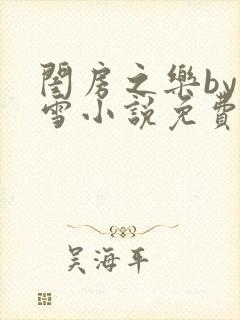 閨房之樂by
雪小說免費
吴海平